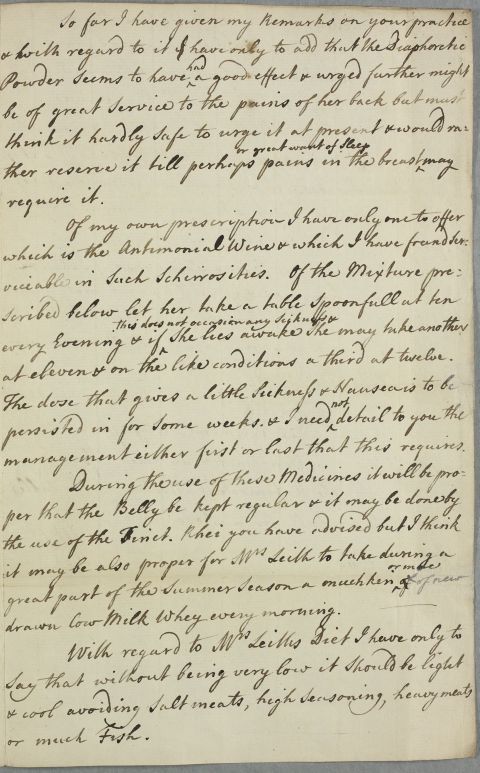 So far I have given my Remarks on your practice
& with regard to it I have only to add that the Diaphoretic
Powder seems to have had a good effect & urged further might
be of great service to the pains of her back but must
think it hardly safe to urge it at present & would ra:
ther reserve it till perhaps pains in the breast or great want of Sleep may
require it.
Of my own prescription I have only one to offer
which is the Antimonial Wine & which I have found Ser:
viceable in such Schirrosities. Of the Mixture pre:
scribed below let her take a table Spoonfull at ten
every Evening & if this does not occasion any Sickness & She lies awake She may take another
at eleven & on the like conditions a third at twelve.
The dose that gives a little Sickness & Nausea is to be
persisted in for some weeks. & I need not detail to you the
management either first or last that this requires.
During the use of these Medicines it will be pro:
per that the Belly be kept regular & it may be done by
the use of the Tinct. Rhei you have advised but I think
it may be also proper for Mrs Leith to take during a
great part of the Summer Season a mutchkin or more of new
drawn Cow Milk Whey every morning.
With regard to Mrs Leiths Diet I have only to
say that without being very low it should be light
& cool avoiding Salt meats, high Seasoning, heavy meats
or much Fish.